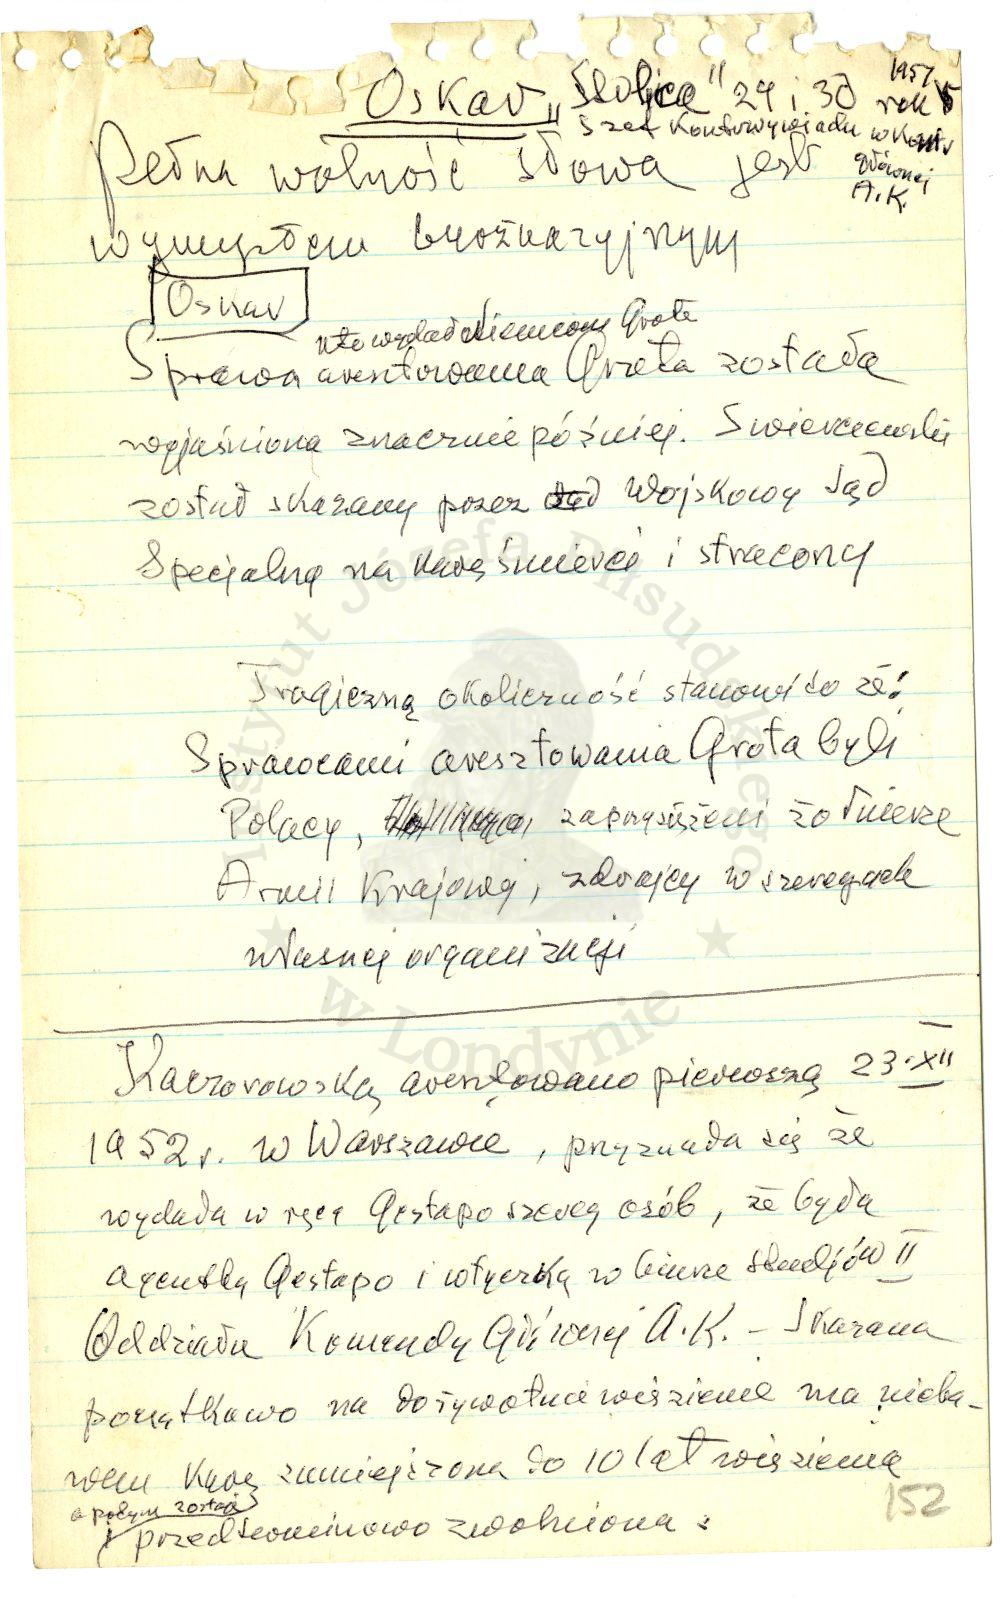 Oskar „Stolica" 29 i 30 1957 rok
Szef Kontrwywiadu w Kom.
głównej
A.K.
Pełna wolność słowa jest
wymysłem burżuazyjnym
Oskar
kto wydał Niemcom Grota
Sprawa aresztowania Grota została
wyjaśniona znacznie później. Swierczewski
został skazany przez Wojskowy Sąd
Specjalny na karę śmierci i stracony
Tragiczną okoliczność stanowi to że:
Sprawcami aresztowania Grota byli
Polacy, zaprzysiężeni żołnierze
Armii Krajowej, zdrajcy w szeregach
własnej organizacji
Kaczorowską aresztowano pierwszą 23.XII
1952 r. w Warszawie, przyznała się że
wydała w ręce Gestapo szereg osób, że była
agentką Gestapo i wtyczką w biurze studjów II
Oddziału Komendy Głównej A.K. – Skazana
początkowo na dożywotnie więzienie ma nieba-
wem karę zmniejszoną do 10 lat więzienia
a potym zostaje
przedterminowo zwolniona.
152
Instytut Józefa Piłsudskiego
w Londynie